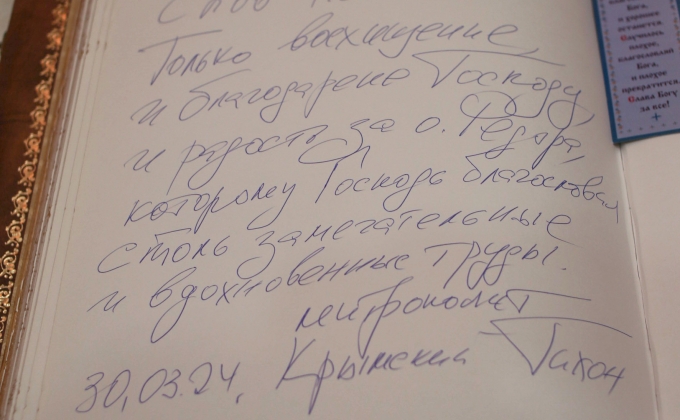 Только восхищение,
и благодарение Господу,
и радость за о. Федора,
которому Господь благословил
столь замечательные
и вдохновенные труды.
митрополит
Крымский Тихон
30.03.24.
Бога,
а хорошее
останется.
Случилось
плохое,
благословляй
Бога,
и плохое
прекратится.
Слава Богу
за все!